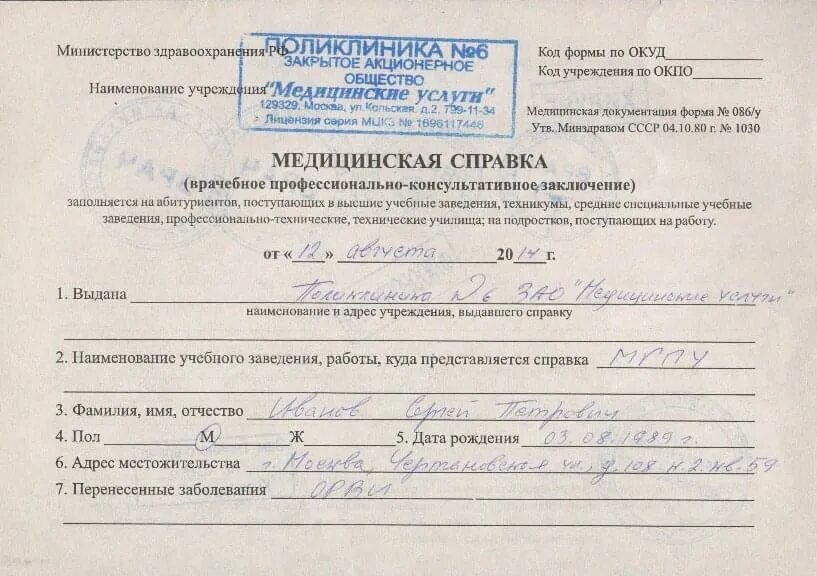 Министерство здравоохранения РФ
Наименование учреждения
ПОЛИКЛИНИКА №6
ЗАКРЫТОЕ АКЦИОНЕРНОЕ
ОБЩЕСТВО
"Медицинские услуги"
129329, Москва, ул.Кольская, д.2, 799-11-34
Лицензия серия МЦКЗ № 1696117446
Код формы по ОКУД
Код учреждения по ОКПО
Медицинская документация форма № 086/у
Утв. Минздравом СССР 04.10.80 г. № 1030
МЕДИЦИНСКАЯ СПРАВКА
(врачебное профессионально-консультативное заключение)
заполняется на абитуриентов, поступающих в высшие учебные заведения, техникумы, средние специальные учебные
заведения, профессионально-технические, технические училища; на подростков, поступающих на работу.
от « 12 » августа 2014 г.
1. Выдана Поликлиника №6 ЗАО "Медицинские услуги"
наименование и адрес учреждения, выдавшего справку
2. Наименование учебного заведения, работы, куда представляется справка МГПУ
3. Фамилия, имя, отчество Иванов Сергей Петрович
4. Пол М Ж 5. Дата рождения 03.08.1989 г.
6. Адрес местожительства г. Москва, Чертановская ул., д.108 к.2 кв.59
7. Перенесенные заболевания ОРВИ